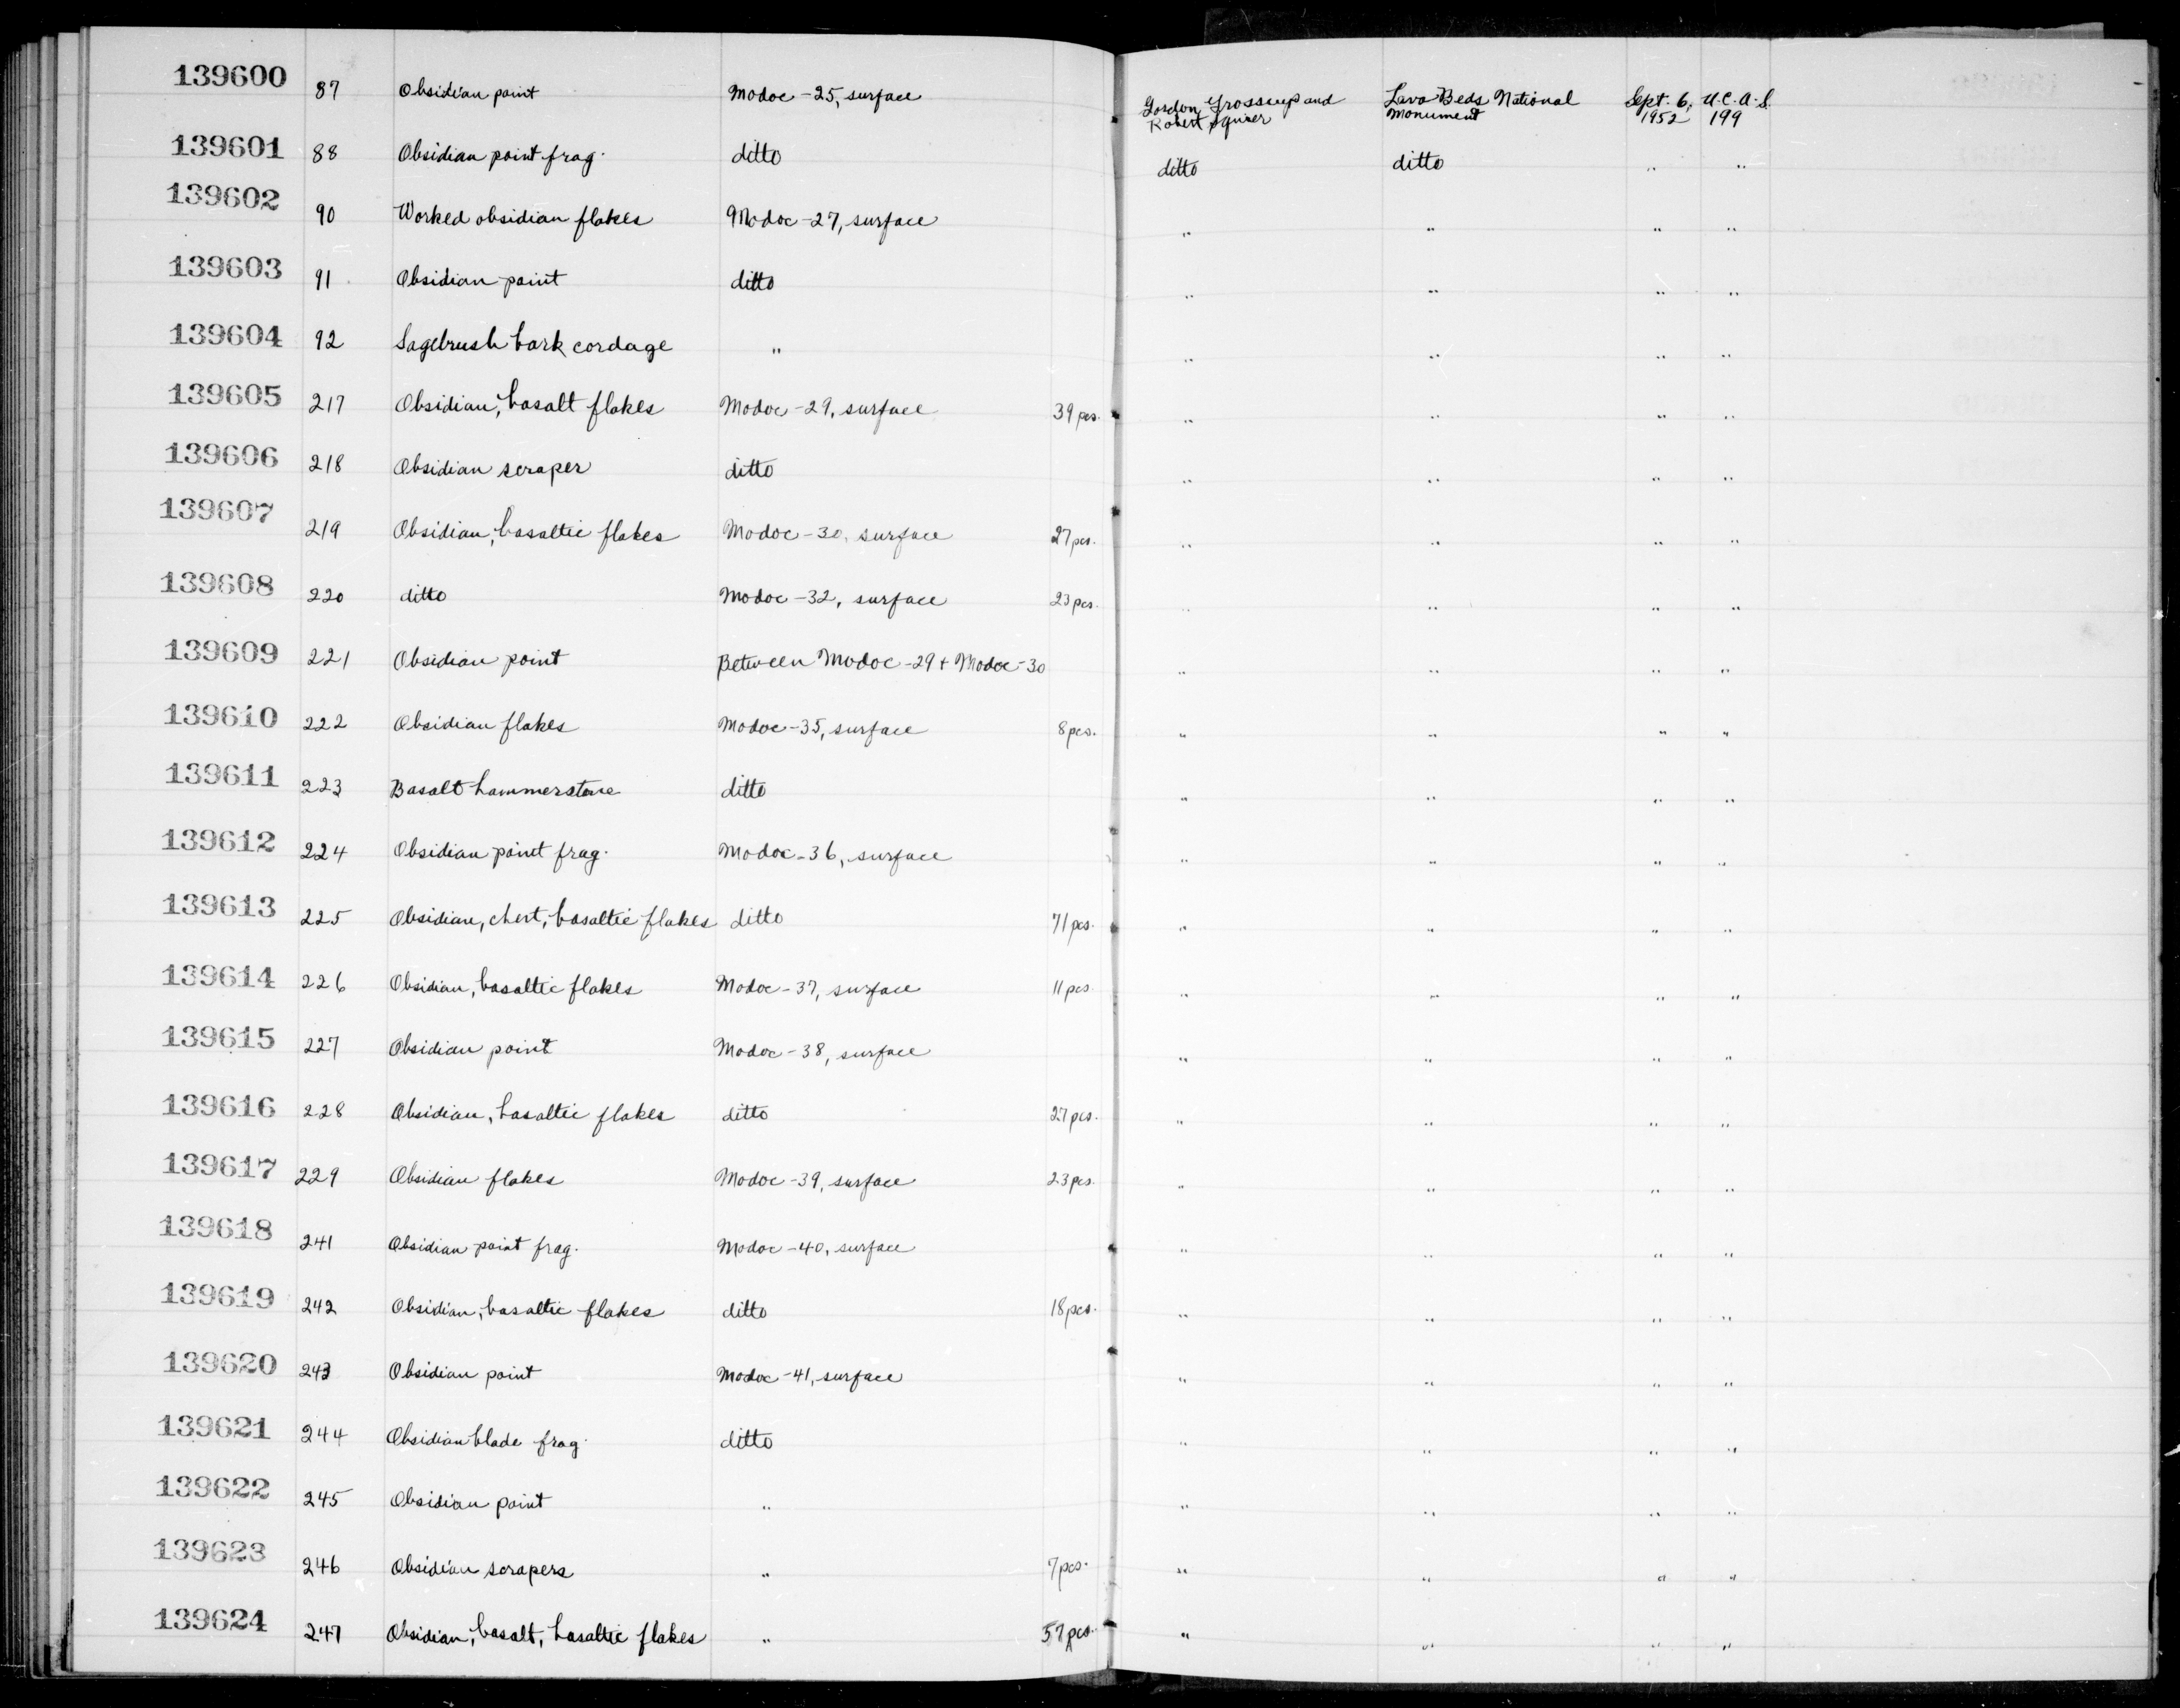 139600 87 Obsidian point Modoc-25, surface Gordon Grosscup and Robert Squier Lava Beds National Monument Sept. 6, 1952 U.C.A.S. 199
139601 88 Obsidian point frag. ditto ditto ditto " "
139602 90 Worked obsidian flakes Modoc-27, surface " " " "
139603 91 Obsidian point ditto " " " "
139604 92 Sagebrush bark cordage " " " " "
139605 217 Obsidian, basalt flakes Modoc-29, surface 39 pcs. " " " "
139606 218 Obsidian scraper ditto " " " "
139607 219 Obsidian, basaltic flakes Modoc-30, surface 27 pcs. " " " "
139608 220 ditto Modoc-32, surface 23 pcs. " " " "
139609 221 Obsidian point Between Modoc-29 + Modoc-30 " " " "
139610 222 Obsidian flakes Modoc-35, surface 8 pcs. " " " "
139611 223 Basalt hammerstone ditto " " " "
139612 224 Obsidian point frag. Modoc-36, surface " " " "
139613 225 Obsidian, chert, basaltic flakes ditto 71 pcs. " " " "
139614 226 Obsidian, basaltic flakes Modoc-37, surface 11 pcs " " " "
139615 227 Obsidian point Modoc-38, surface " " " "
139616 228 Obsidian, basaltic flakes ditto 27 pcs. " " " "
139617 229 Obsidian flakes Modoc-39, surface 23 pcs. " " " "
139618 241 Obsidian point frag. Modoc-40, surface " " " "
139619 242 Obsidian, basaltic flakes ditto 18 pcs. " " " "
139620 243 Obsidian point Modoc-41, surface " " " "
139621 244 Obsidian blade frag. ditto " " " "
139622 245 Obsidian point " " " " "
139623 246 Obsidian scrapers " 7 pcs. " " " "
139624 247 Obsidian, basalt, basaltic flakes " 57 pcs. " " " "